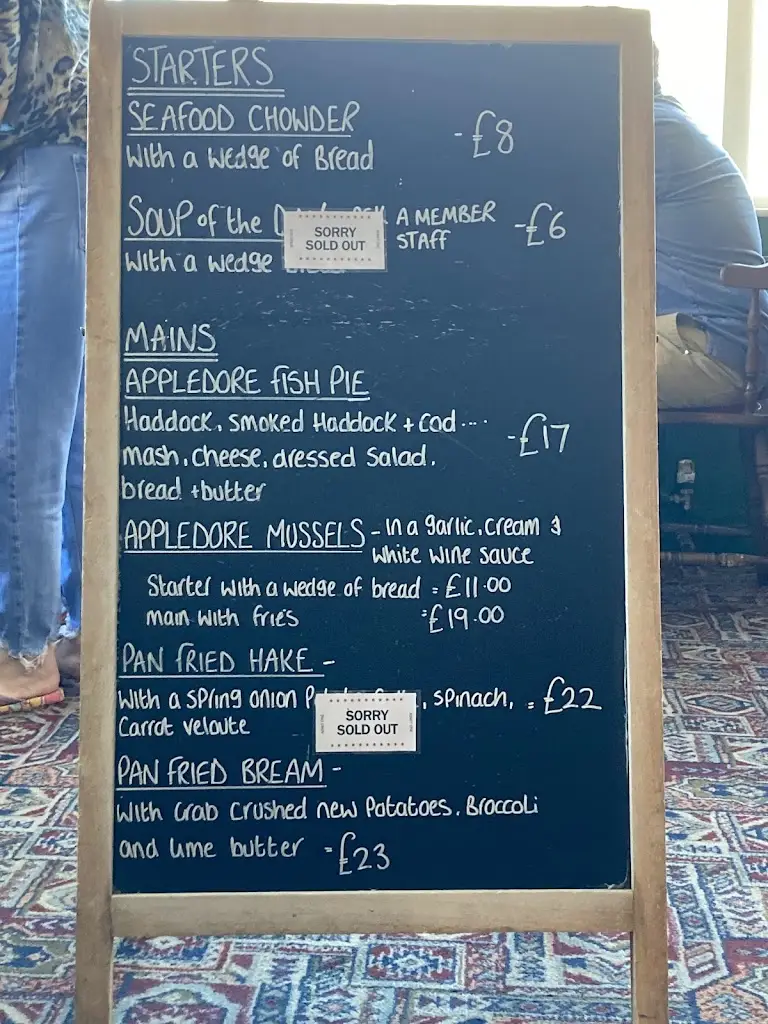 STARTERS
SEAFOOD CHOWDER
With a wedge of Bread
-£8
SOUP of the
A MEMBER
STAFF
-£6
With a wedge
SORRY
SOLD OUT
MAINS
APPLEDORE FISH PIE
Haddock, smoked Haddock + Cod ....
mash, cheese, dressed salad,
bread + butter
-£17
APPLEDORE MUSSELS - In a garlic, cream &
White wine sauce
Starter with a wedge of bread = £11.00
main with fries =£19.00
PAN FRIED HAKE -
With a spring onion
, spinach, = £22
Carrot veloute
SORRY
SOLD OUT
PAN FRIED BREAM -
With Crab Crushed new Potatoes, Broccoli
and lime butter -£23